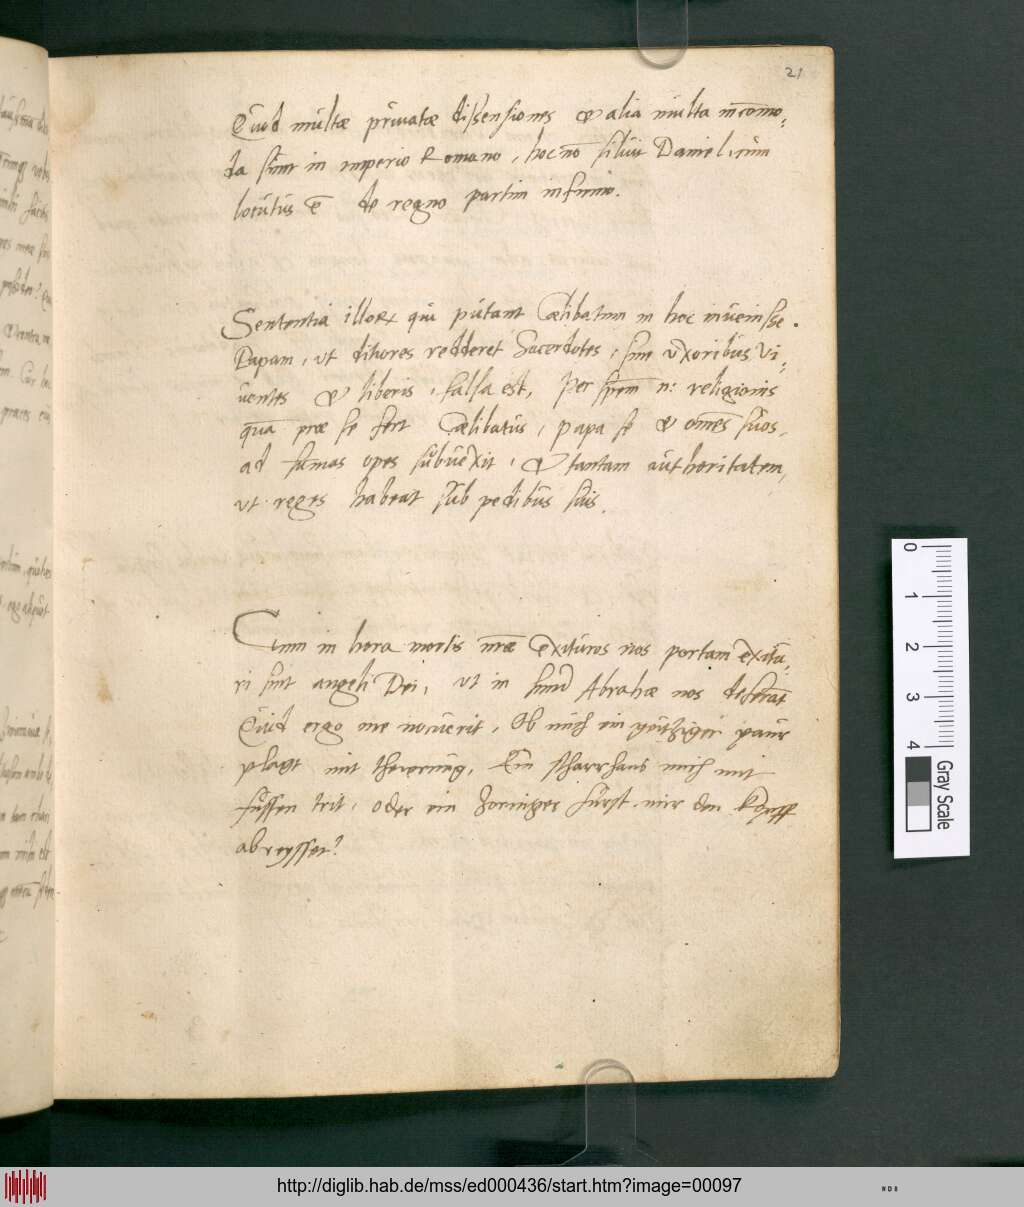 21
Quod multæ privatæ dissensiones & alia multa incōmo-
da sunt in imperio Romano, hoc nō siluit Daniel, cum
locutus ē de regno partim infirmo.
Sententia illorꝝ qui putant Cælibatum in hoc invenisse
Papam, ut ditiores redderet Sacerdotes, sine uxoribus vi-
ventes & liberis, falsa est, Per spēm n: religionis
quā præ se fert Cælibatus, papa se & omēs suos,
ad sumas opes subuexit, & tantam authoritatem,
ut reges habeat sub pedibus suis.
Cum in hora mortis nr̄æ exituros nos portam exitu-
ri sint angeli Dei, ut in sinū Abrahæ nos deferāt
Quid ergo me nocuerit, Ob mich ein geitziger paur
plagt mit thewrung, Ein scharrhans mich mit
füssen trit, oder ein zorniger fürst mir den kopff
abreysset?
0
1
2
3
4
Gray Scale
http://diglib.hab.de/mss/ed000436/start.htm?image=00097